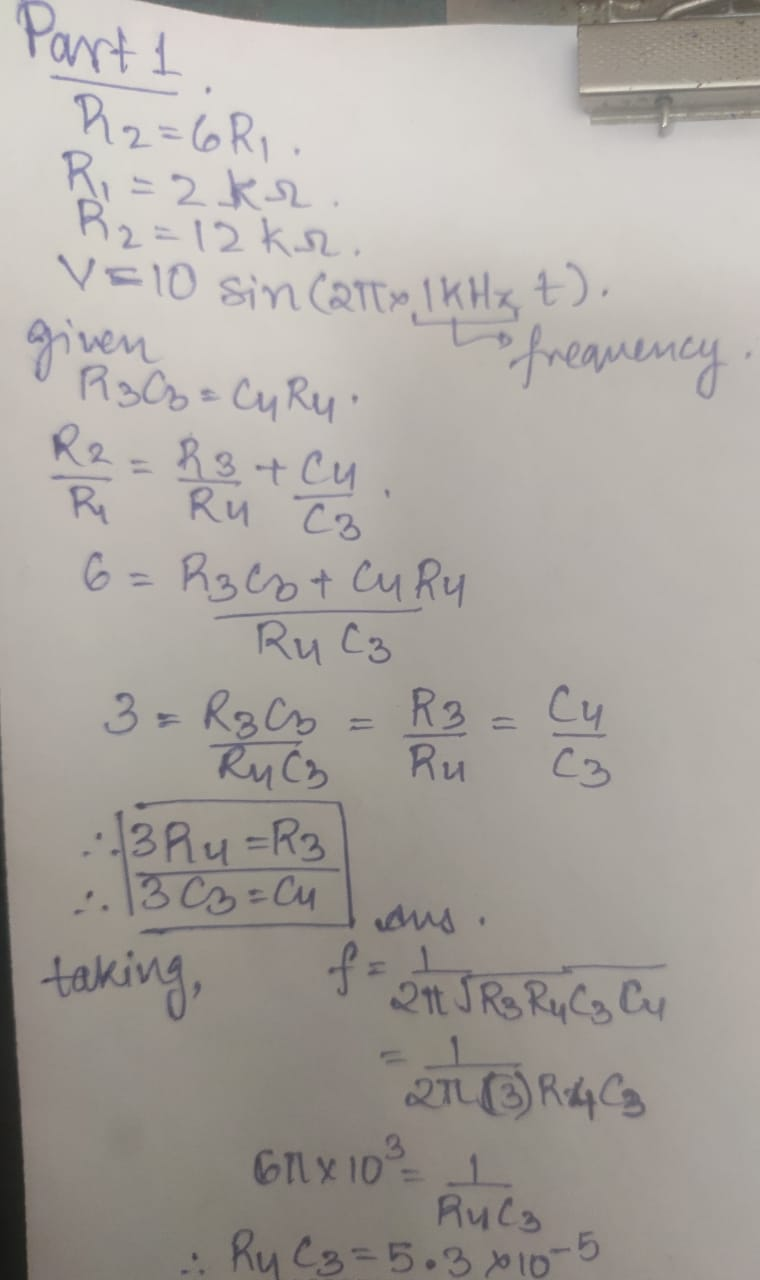 Part 1.
R2 = 6R1.
R1 = 2 kΩ.
R2 = 12 kΩ.
V = 10 sin(2π× 1KHz t).
given
→ frequency.
R3C3 = C4R4.
R2/R1 = R3/R4 + C4/C3.
6 = (R3C3 + C4R4)/(R4C3)
3 = R3C3/R4C3 = R3/R4 = C4/C3
∴ 3R4 = R3
∴ 3C3 = C4 ans.
taking, f = 1/(2π√R3R4C3C4)
= 1/(2π(3)R4C3)
6π×10³ = 1/R4C3
∴ R4C3 = 5.3 ×10⁻⁵